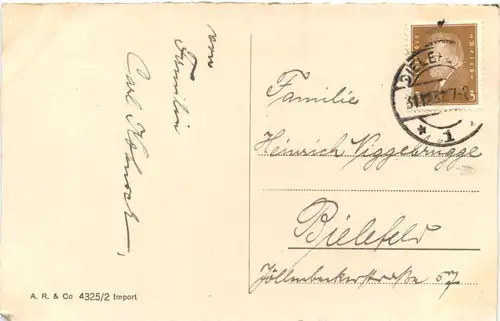 von
Familie
Carl
Familie
Heinrich Viggebrugge
Bielefeld
Jöllenbeckerstraße 57
A. R. & Co 4325/2 Import